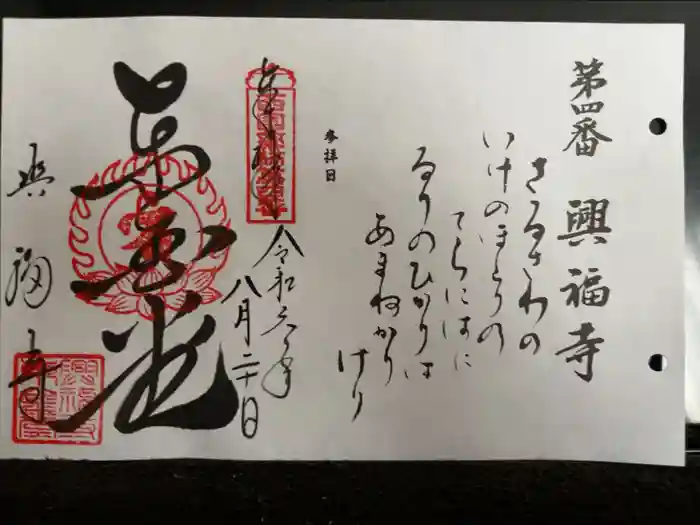 第四番 興福寺
さるさわの
いけのほとりの
てらにはに
るりのひかりは
あまねかり
けり
参拝日
奉拝
令和六年
八月二十日
東金堂
興福寺